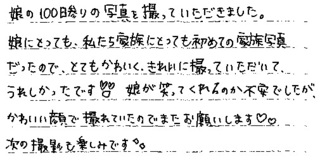 娘の100日祭りの写真を撮っていただきました。
娘にとっても、私たち家族にとっても初めての家族写真
だったので、とてもかわいく、きれいに撮っていただいて、
うれしかったです♡♡ 娘が笑ってくれるのか不安でしたが、
かわいい顔で撮れていたのでまたお願いします♡♡
次の撮影も楽しみです。